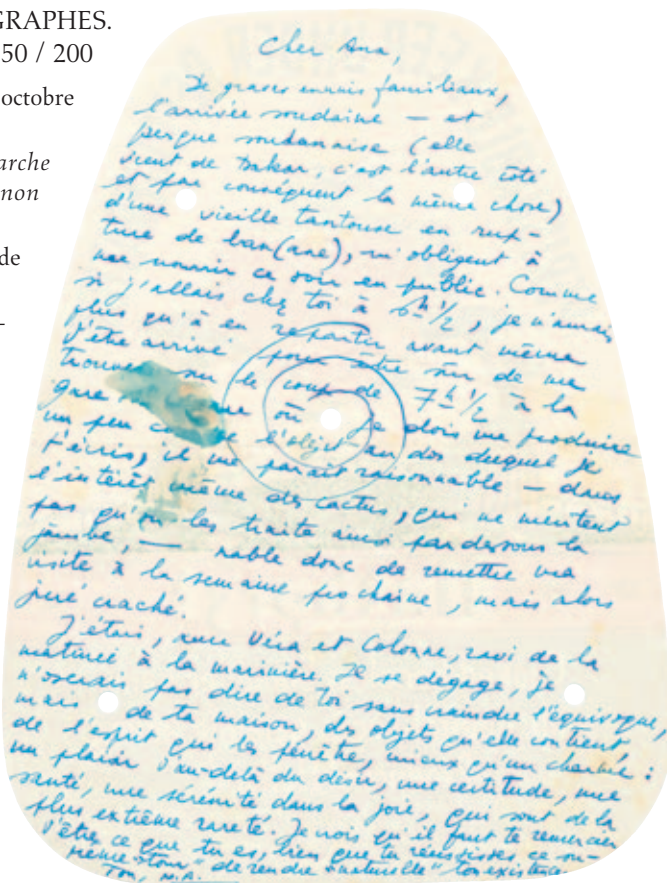 GRAPHES.
50 / 200
octobre
arche
non
de
-
Cher Ana,
De graves ennuis familiaux,
l'arrivée soudaine — et
presque soudanaise (elle
vient de Dakar, c'est l'autre côté
et par conséquent la même chose)
d'une vieille tantouse en rup-
ture de ban(ane), m'obligent à
me nourrir ce soir en public. Comme
si j'allais chez toi à 6h 1/2, je n'aurais
plus qu'à en repartir avant même
d'être arrivé pour être sûr de me
trouver sur le coup de 7h 1/2 à la
gare où je dois me produire
un peu l'objet au dos duquel je
t'écris, il me paraît raisonnable — dans
l'intérêt même des cactus, qui ne méritent
pas qu'on les traite ainsi par dessous la
jambe, — nable donc de remettre ma
visite à la semaine prochaine, mais alors
juré craché.
J'étais, avec Véra et Colonne, ravi de la
matinée à la marinière. Il se dégage, je
n'oserais pas dire de toi sans craindre l'équivoque,
mais de ta maison, des objets qu'elle contient,
de l'esprit qui les pénètre, mieux qu'un charme :
un plaisir au-delà du désir, une certitude, une
santé, une sérénité dans la joie, qui sont de la
plus extrême rareté. Je crois qu'il faut te remercier
d'être ce que tu es, bien que tu réussisses ce su-
prême "tour" de rendre "naturelle" ton existence.
Ton,